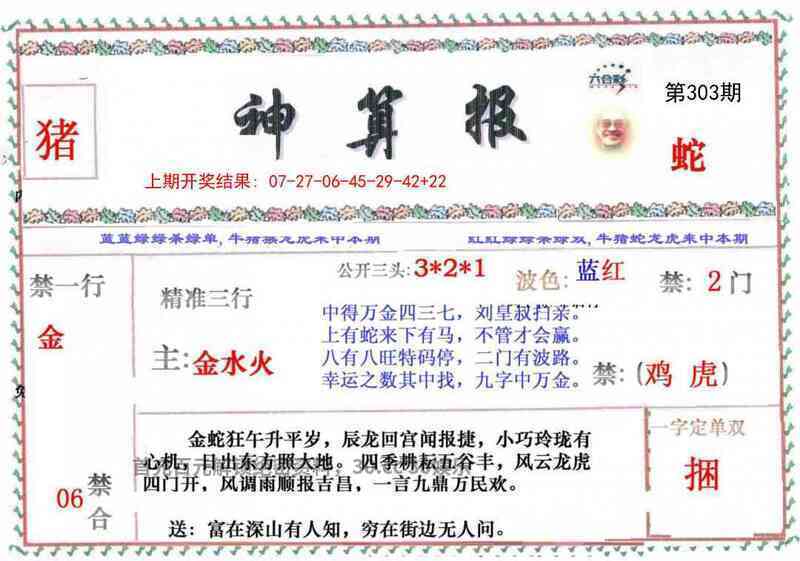 六合彩
第303期
神算报
猪
蛇
上期开奖结果：07-27-06-45-29-42+22
蓝蓝绿绿杀绿单，牛猪猴龙虎来中本期
红红绿绿杀绿双，牛猪蛇龙虎来中本期
禁一行
金
精准三行
主：金水火
公开三头：3*2*1
波色：蓝红
禁：2门
中得万金四三七，刘皇叔扫亲。
上有蛇来下有马，不管才会赢。
八有八旺特码停，二门有波路。
幸运之数其中找，九字中万金。
禁：（鸡 虎）
06
禁合
金蛇狂午升平岁，辰龙回宫闻报捷，小巧玲珑有
心机，日出东方照大地。四季耕耘五谷丰，风云龙虎
四门开，风调雨顺报吉昌，一言九鼎万民欢。
送：富在深山有人知，穷在街边无人问。
一字定单双
捆